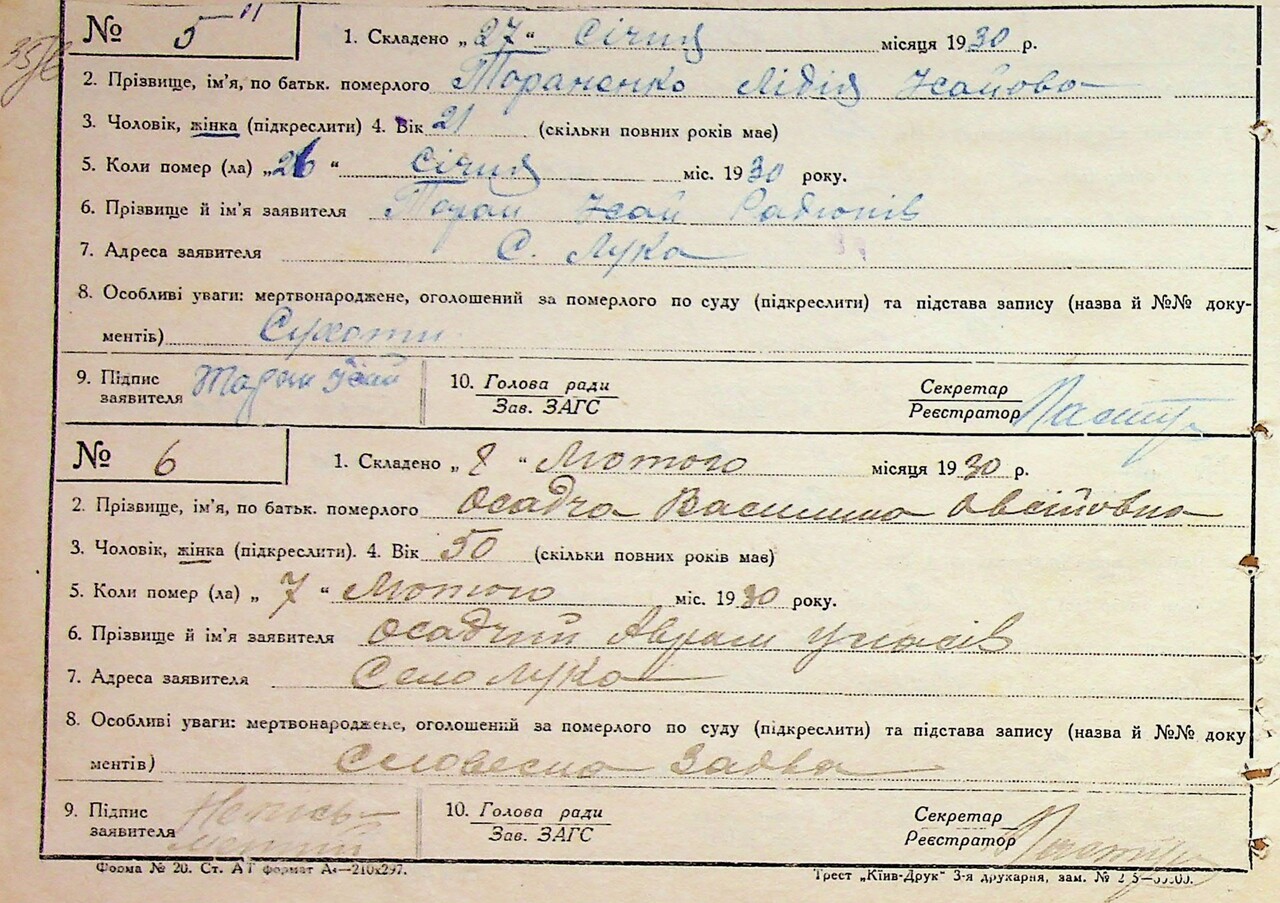 № 5
1. Складено „27“ Січня місяця 1930 р.
2. Прізвище, ім'я, по батьк. померлого Тораненко Лідія Ісайова
3. Чоловік, жінка (підкреслити) 4. Вік 21 (скільки повних років має)
5. Коли помер (ла) „26“ Січня міс. 1930 року.
6. Прізвище й ім'я заявителя Торан Ісай Радіонів
7. Адреса заявителя С. Лука
8. Особливі уваги: мертвонароджене, оголошений за померлого по суду (підкреслити) та підстава запису (назва й №№ доку-
ментів) Сухоти
9. Підпис заявителя Таран Ісай 10. Голова ради Зав. ЗАГС Секретар Реєстратор
№ 6
1. Складено „8“ Лютого місяця 1930 р.
2. Прізвище, ім'я, по батьк. померлого Осадча Василина
3. Чоловік, жінка (підкреслити). 4. Вік 50 (скільки повних років має)
5. Коли помер (ла) „7“ Лютого міс. 1930 року.
6. Прізвище й ім'я заявителя Осадчий Аврам
7. Адреса заявителя Село Лука
8. Особливі уваги: мертвонароджене, оголошений за померлого по суду (підкреслити) та підстава запису (назва й №№ доку
ментів) Словесна Заява
9. Підпис заявителя Непись-менний 10. Голова ради Зав. ЗАГС Секретар Реєстратор
Форма № 20. Ст. АТ формат А4—210х297.
Трест „Київ-Друк“ 3-я друкарня, зам. №